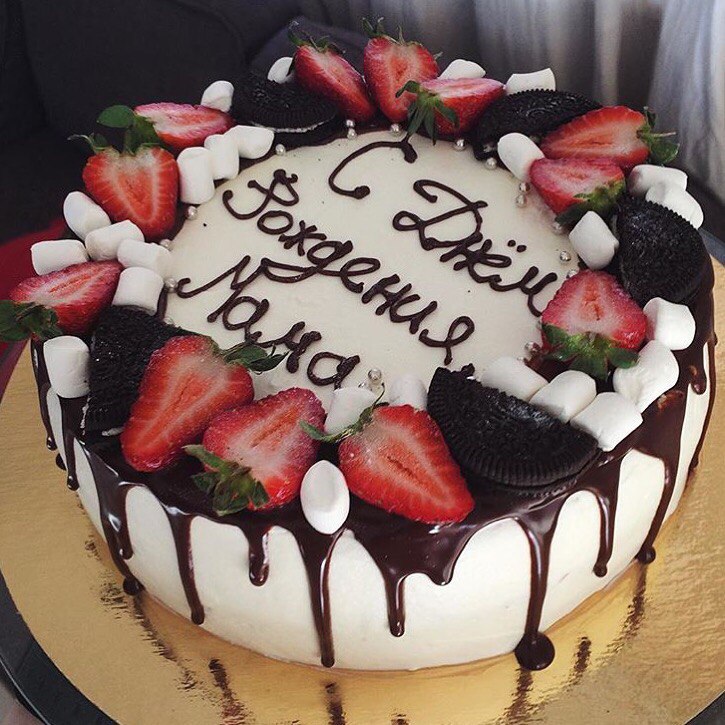 С Днём
Рождения
Мама